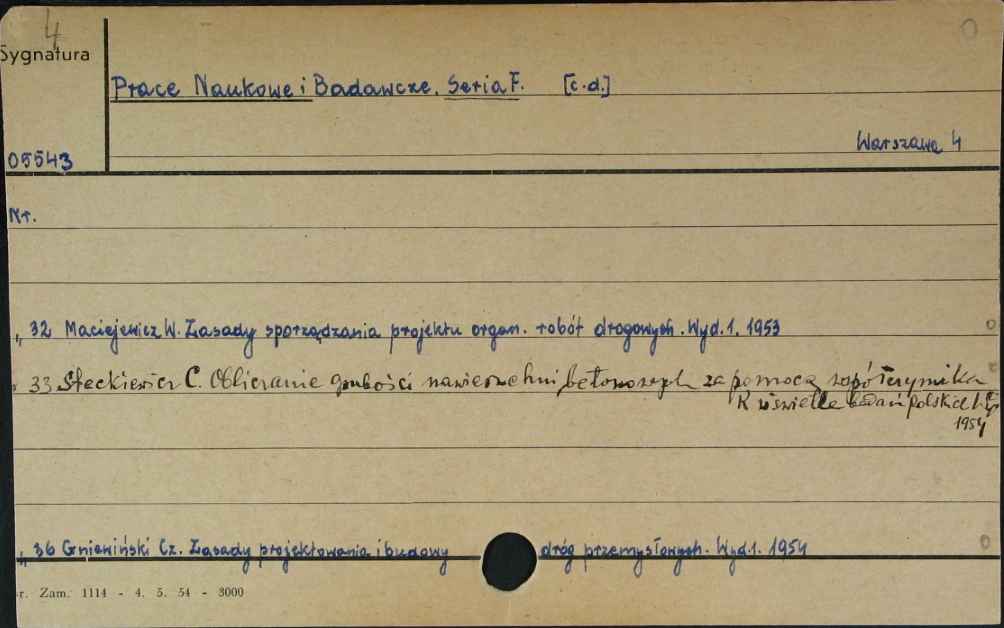 4
Sygnatura
Prace Naukowe i Badawcze. Seria F. [c.d.]
Warszawa 4
05543
Nr.
„ 32 Maciejewicz W. Zasady sporządzania projektu organ. robót drogowych. Wyd. 1. 1953
„ 33 Steckiewicz C. Obliczanie grubości nawierzchni betonowych za pomocą współczynnika
K w świetle badań polskich
1954
„ 36 Gniewiński Cz. Zasady projektowania i budowy dróg przemysłowych. Wyd. 1. 1954
r. Zam. 1114 - 4. 5. 54 - 3000